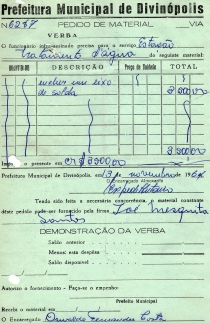 Prefeitura Municipal de Divinópolis
N 6267 PEDIDO DE MATERIAL VIA
VERBA
O funcionário infra-assinado precisa para o serviço Estação
tratamento d'água do seguinte material:
QUANTIDADE DESCRIÇÃO Preço da Unidade TOTAL
um eixo
de solda
Impo o presente em CR$
Prefeitura Municipal de Divinópolis, em 13 de novembro de 196
Encarregado Almoxarife
Tendo sido feita a necessária concorrência, o material constante
dêste pedido pode ser fornecido pela firma Jol mesquita
DEMONSTRAÇÃO DA VERBA
Saldo anterior
Menos esta despêsa
Saldo disponível
Autorizo o fornecimento - Faça-se o empenho:
Prefeito Municipal
Recebi o material em
O Encarregado Osvaldo Fernandes Costa